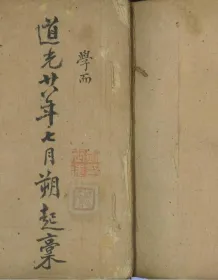 學而
道光廿八年七月朔起稾